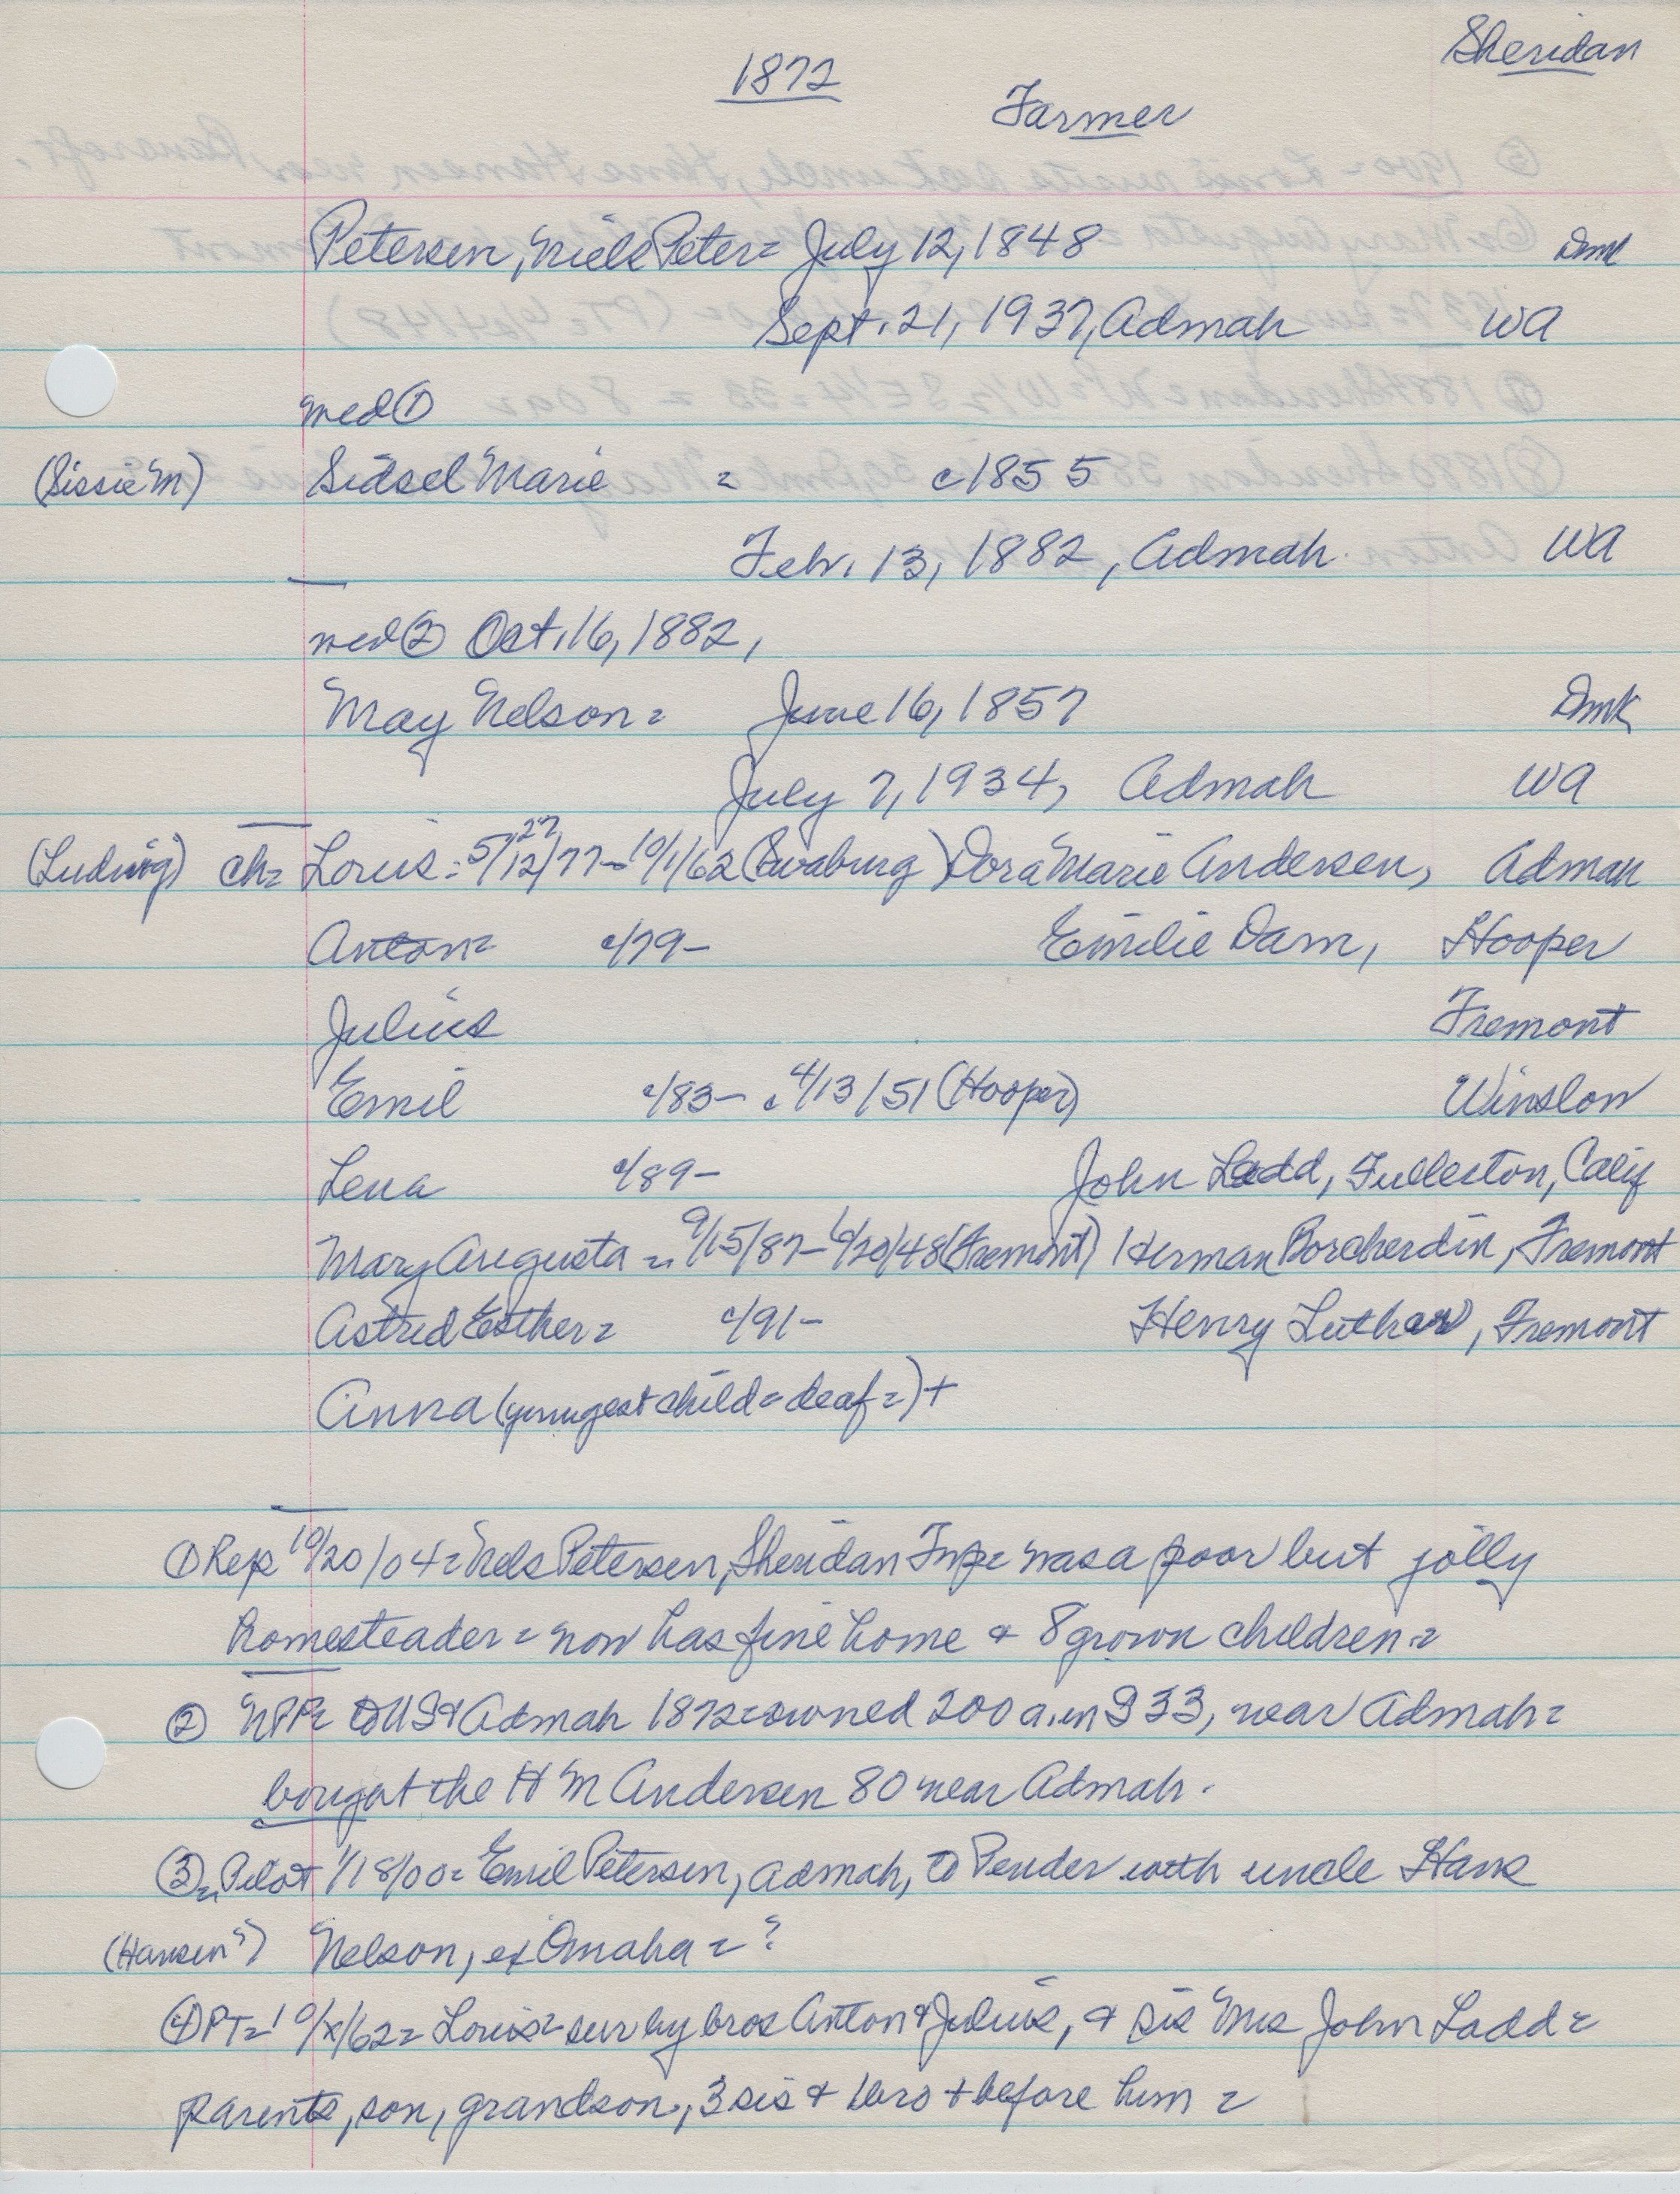 Sheridan
1872
Farmer
Petersen, Niels Peter = July 12, 1848 Dmk
Sept. 21, 1937, Admah WA
med ①
(Sissie M) Sidsel Marie = c1855
Febr. 13, 1882, Admah. WA
med ② Oct. 16, 1882,
May Nelson = June 16, 1857 Dmk
July 7, 1934, Admah WA
27
(Ludwig) ch= Louis = 5/12/77 - 10/1/62 (Swaburg) Dora Marie Andersen, Admah
Anton = c/79 - Emilie Dam, Hooper
Julius Fremont
Emil c/83 - c4/13/51 (Hooper) Winslow
Lena c/89 - John Ladd, Fulleston, Calif
Mary Augusta = 9/15/87 - 6/20/48 (Fremont) Herman Borcherdin, Fremont
Astred Esther = c/91 - Henry Luthar, Fremont
Anna (youngest child = deaf =) +
① Rep 10/20/04 = Nels Petersen, Sheridan Twp = was a poor but jolly
homesteader = now has fine home & 8 grown children =
② NPP = to US & Admah 1872 = owned 200 a. in S 33, near Admah =
bought the H M Andersen 80 near Admah.
③ = Pilot 1/18/00 = Emil Petersen, Admah, to Pender with uncle Hans
(Hansen?) Nelson, ex Omaha = ?
④ PT = 10/x/62 = Louis = sur by bros Anton & Julius, & sis Mrs John Ladd =
parents, son, grandson, 3 sis & bro + before him =